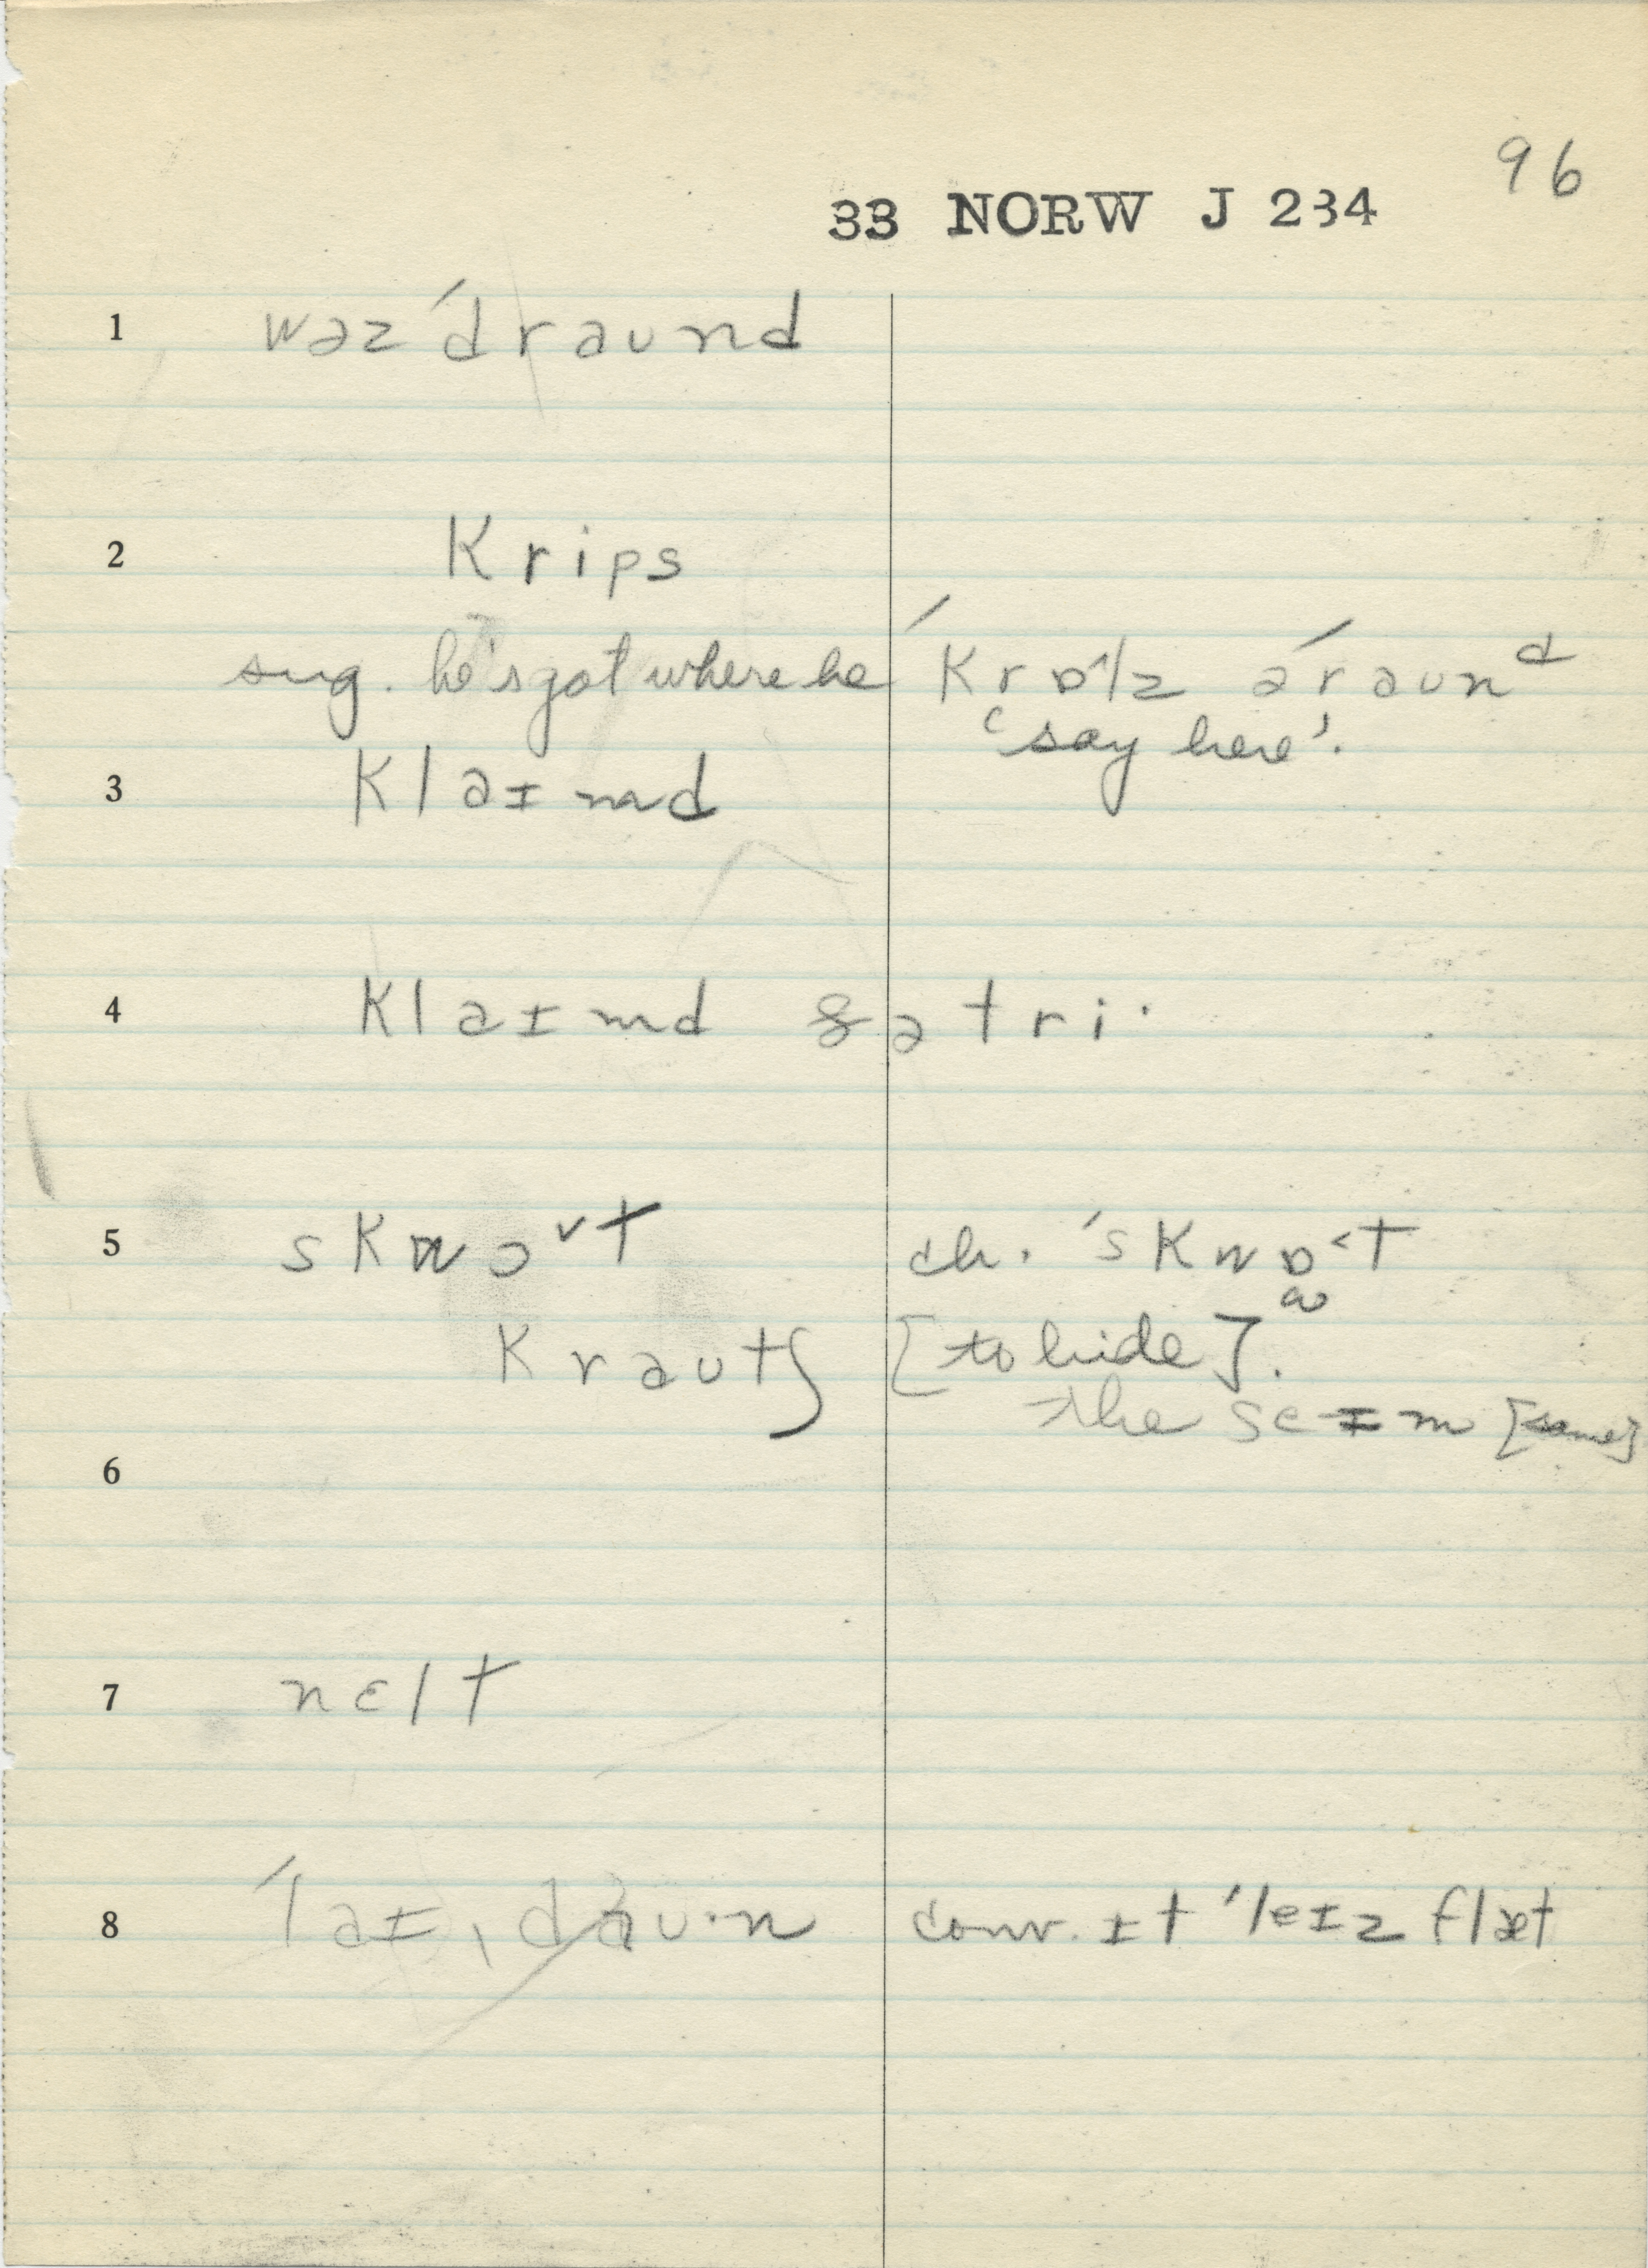 96
33 NORW J 234
1 wəz ˊdraund
2 krips
sug. he's got where he ˊkrɒ˂lz əˊraunᵈ
'say here'.
3 klaɪmd
4 klaɪmd ðə tri·
5 skwɔ˅t ch. ˊskwɒ˂t
ɷ
krautʃ [to hide].
the seɪm [same]
6
7 nɛlt
8 ˊlaɪˌdau·n conv. ɪt ˊleɪz flæt